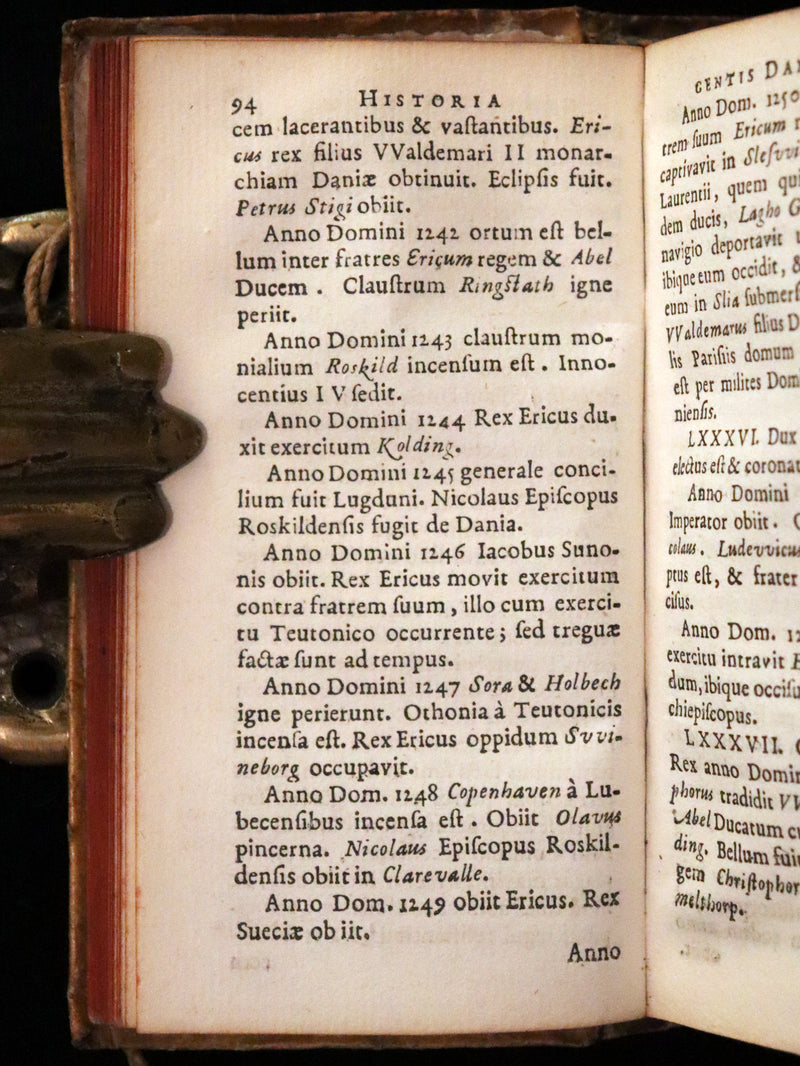 94 HISTORIA
cem lacerantibus & vaſtantibus. Eri-
cus rex filius VValdemari II monar-
chiam Daniæ obtinuit. Eclipſis fuit.
Petrus Stigi obiit.
Anno Domini 1242 ortum eſt bel-
lum inter fratres Ericum regem & Abel
Ducem . Clauſtrum Ringſtath igne
periit.
Anno Domini 1243 clauſtrum mo-
nialium Roskild incenſum eſt . Inno-
centius IV ſedit.
Anno Domini 1244 Rex Ericus du-
xit exercitum Kolding.
Anno Domini 1245 generale conci-
lium fuit Lugduni. Nicolaus Epiſcopus
Roskildenſis fugit de Dania.
Anno Domini 1246 Iacobus Suno-
nis obiit. Rex Ericus movit exercitum
contra fratrem ſuum , illo cum exerci-
tu Teutonico occurrente ; ſed treguæ
factæ ſunt ad tempus.
Anno Domini 1247 Sora & Holbech
igne perierunt. Othonia à Teutonicis
incenſa eſt. Rex Ericus oppidum Svvi-
neborg occupavit.
Anno Dom. 1248 Copenhaven à Lu-
becenſibus incenſa eſt . Obiit Olavus
pincerna. Nicolaus Epiſcopus Roskil-
denſis obiit in Clarevalle.
Anno Dom. 1249 obiit Ericus. Rex
Sueciæ ob iit.
Anno
GENTIS DA
Anno Dom. 1250
trem ſuum Ericum
captivavit in Sleſvvi
Laurentii, quem qui
dem ducis, Lagho G
navigio deportavit
ibique eum occidit, &
eum in Slia ſubmerſ
VValdemarus filius D
lis Pariſiis domum
eſt per milites Dom
nienſis.
LXXXVI. Dux
electus eſt & coronat
Anno Domini
Imperator obiit .
colaus. Ludevvicus
ptus eſt, & frater
ciſus.
Anno Dom. 12
exercitu intravit
dum, ibique occiſu
chiepiſcopus.
LXXXVII. C
Rex anno Domin
phorus tradidit VV
Abel Ducatum cu
ding. Bellum fui
gem Chriſtophor
melthorp.